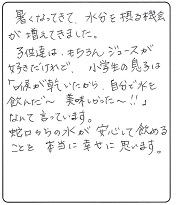 暑くなってきて、水分を摂る機会
が増えてきました。
子供達は、もちろんジュースが
好きだけれど、小学生の息子は
「喉が乾いたから、自分で水を
飲んだ〜 美味しかった〜!!」
なんて言っています。
蛇口からの水が安心して飲める
ことを本当に幸せに思います。